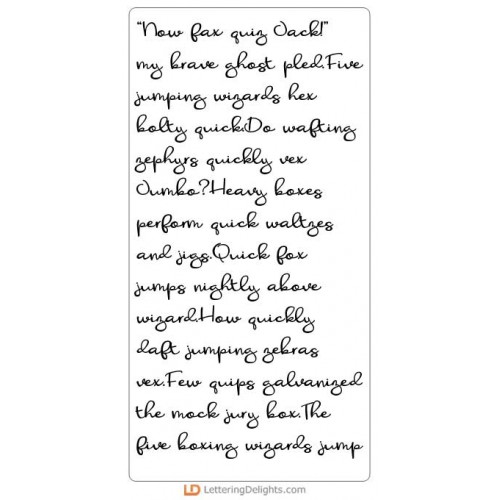 "Now fax quiz Jack!"
my brave ghost pled.Five
jumping wizards hex
bolty quick.Do wafting
zephyrs quickly vex
Jumbo?Heavy boxes
perform quick waltzes
and jigs.Quick fox
jumps nightly above
wizard.How quickly
daft jumping zebras
vex.Few quips galvanized
the mock jury box.The
five boxing wizards jump
LD LetteringDelights.com